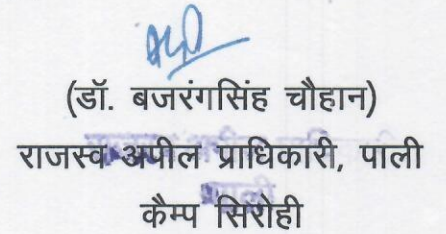 (डॉ. बजरंगसिंह चौहान)
राजस्व अपील प्राधिकारी, पाली
कैम्प सिरोही